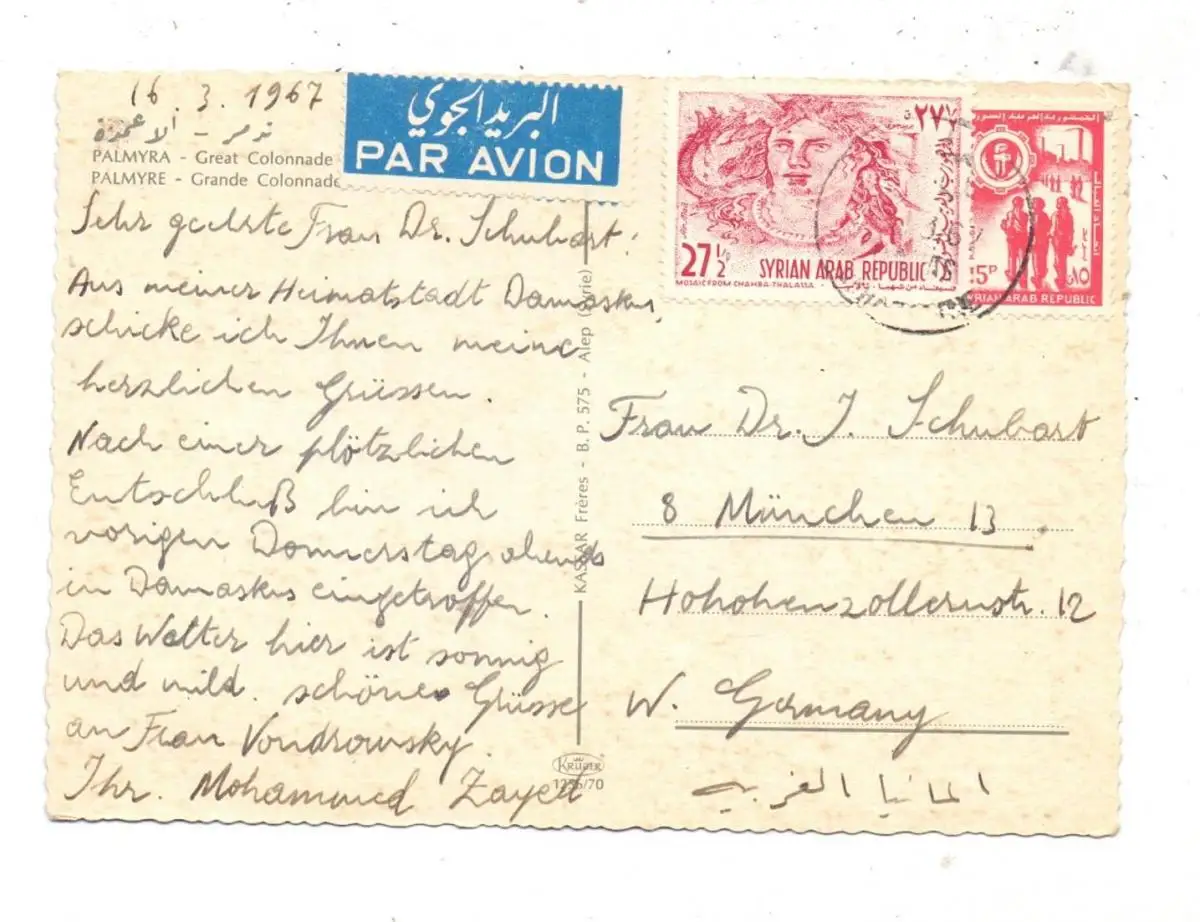 16.3.1967
تدمر - الأعمدة
PALMYRA - Great Colonnade
PALMYRE - Grande Colonnade
البريد الجوي
PAR AVION
Sehr geehrte Frau Dr. Schubart.
Aus meiner Heimatstadt Damaskus,
schicke ich Ihnen meine
herzlichen Grüssen.
Nach einer plötzlichen
Entschluß bin ich
vorigen Donnerstag abends
in Damaskus eingetroffen.
Das Wetter hier ist sonnig
und mild. schöne Grüsse
an Frau Vondrowsky.
Ihr. Mohamoued Zayed
KASSAR Frères - B. P. 575 - Alep (Syrie)
KRÜGER
1256/70
27 1/2 P
SYRIAN ARAB REPUBLIC
MOSAIC FROM CHAHBA-THALASSA
الجمهورية العربية السورية
15P
SYRIAN ARAB REPUBLIC
Frau Dr. J. Schubart
8 München 13.
Hohohenzollernstr. 12
W. Germany
المانيا الغربية